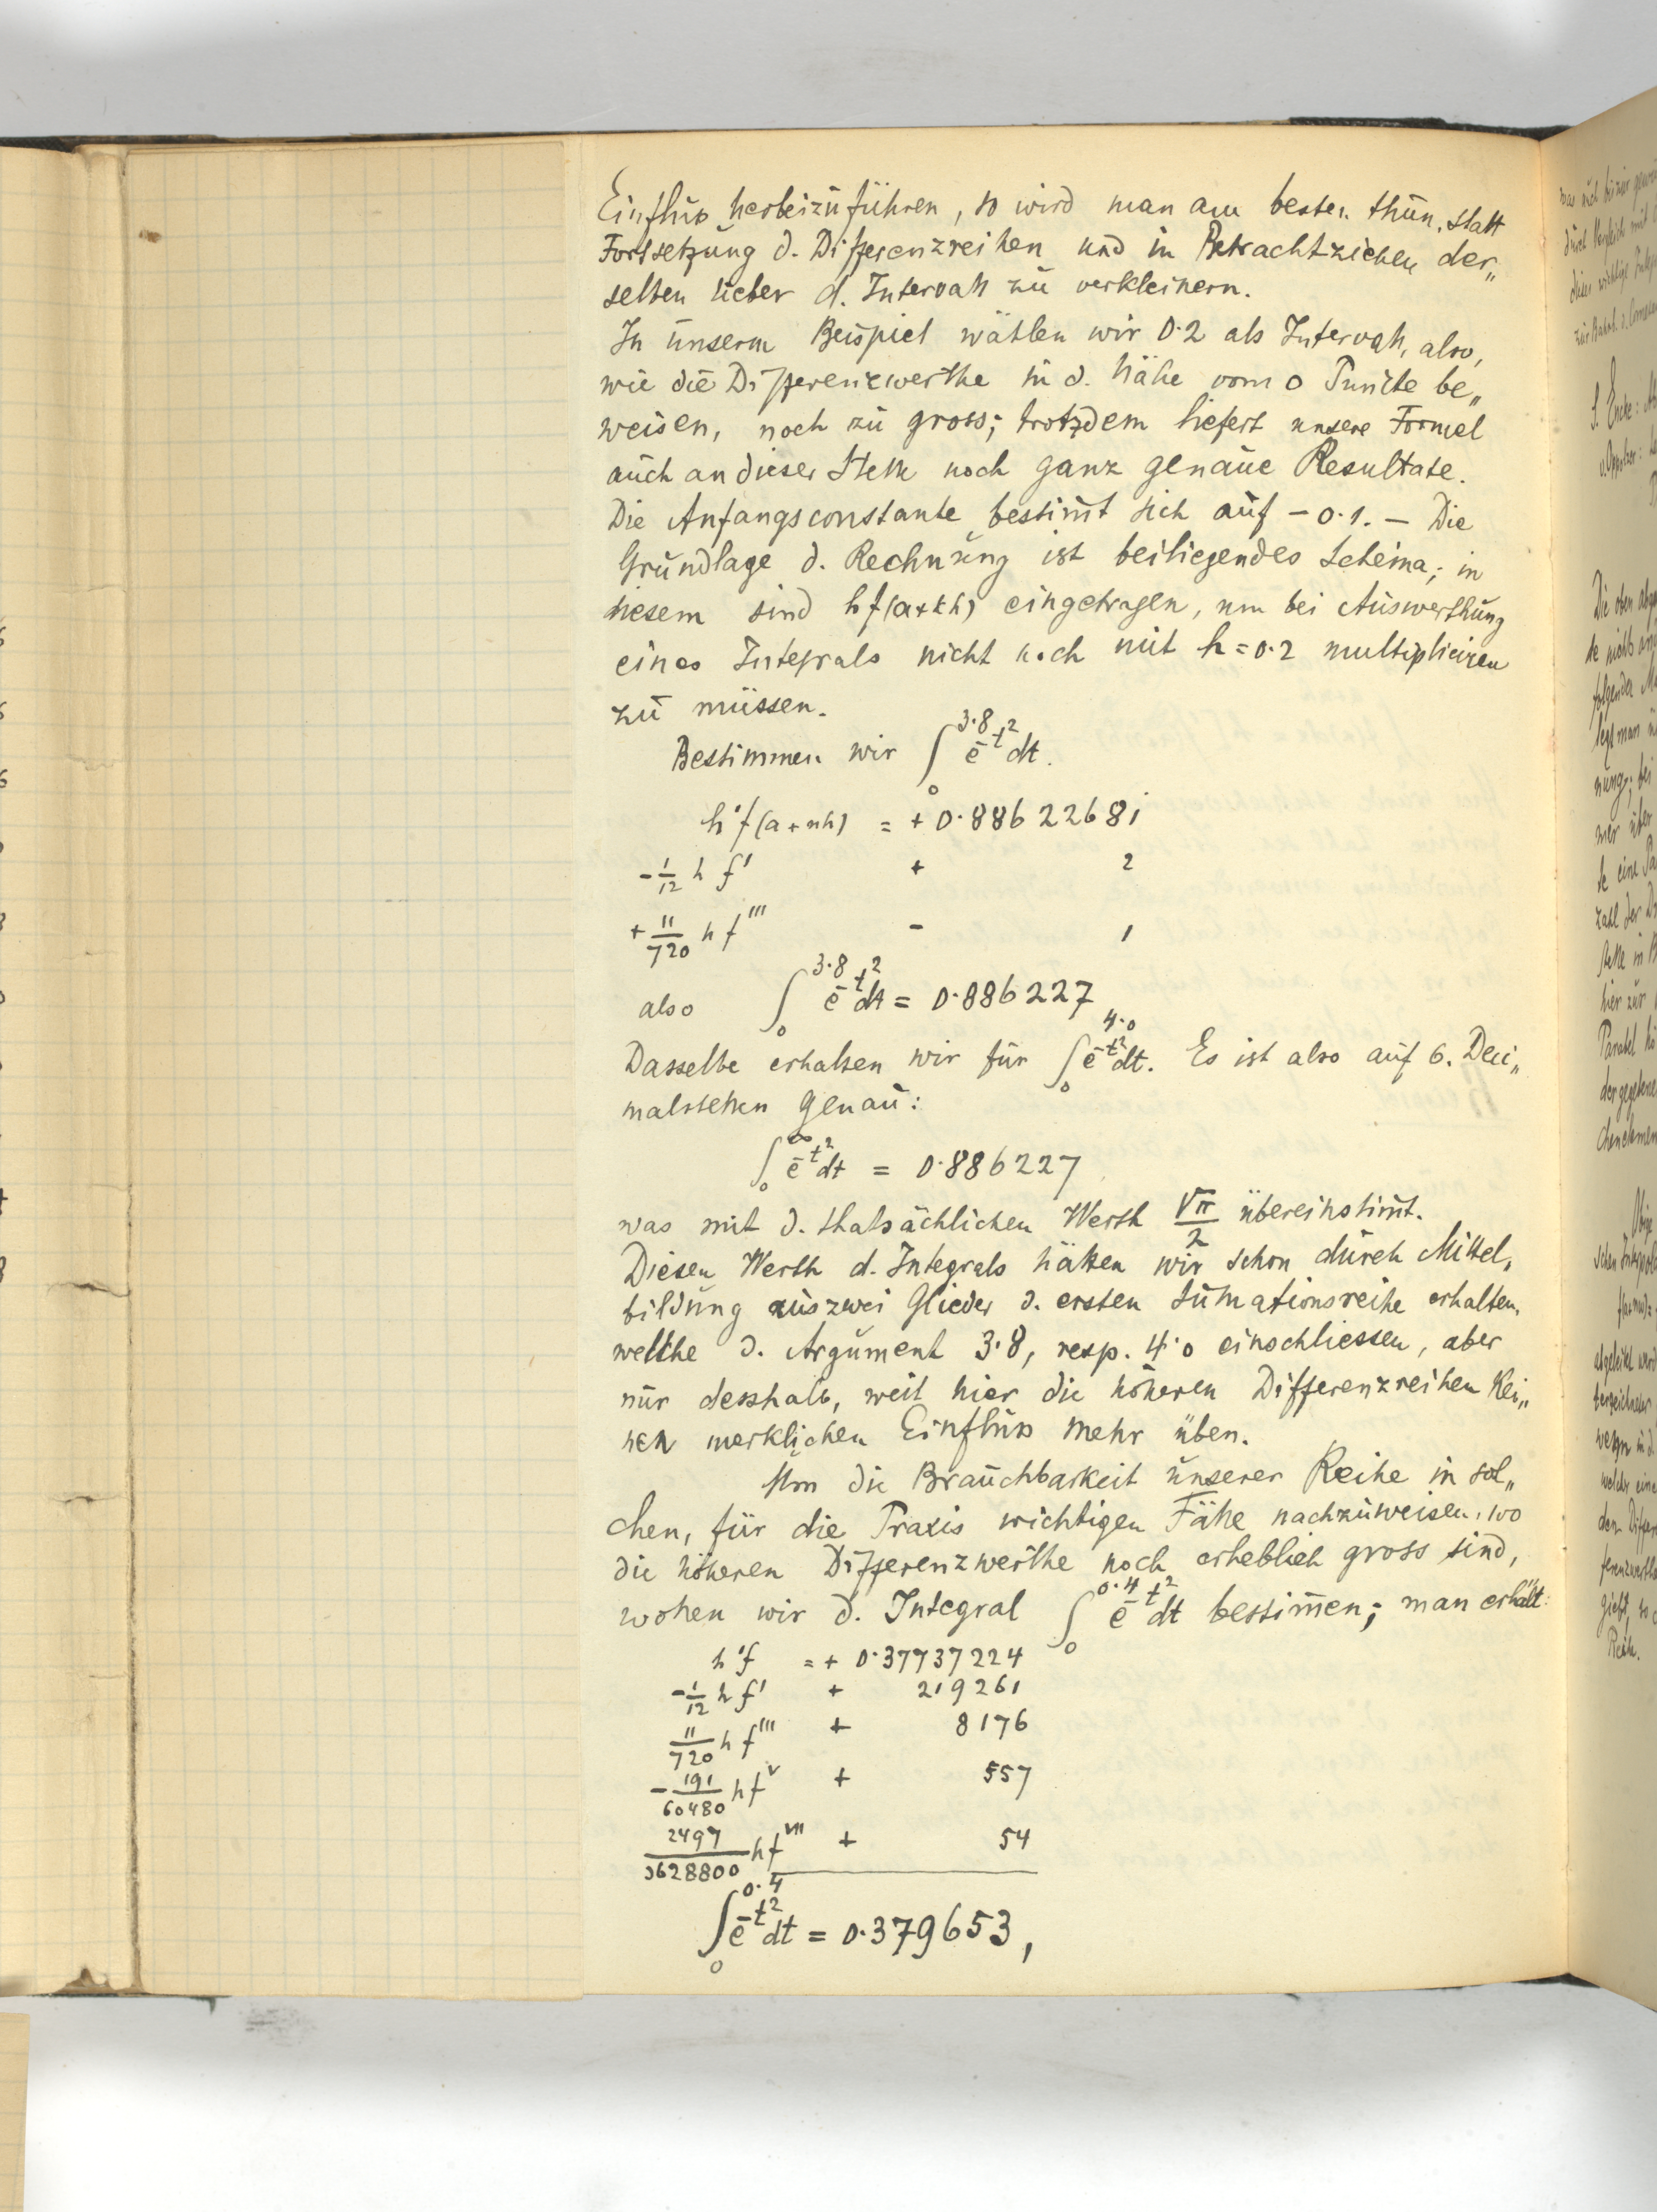 Einfluss herbeizuführen, so wird man am besten thun, statt
Fortsetzung d. Differenzreihen und in Betrachtziehen der„
selben lieber d. Intervall zu verkleinern.
In unserm Beispiel wählen wir 0·2 als Intervall, also,
wie die Differenzwerthe in d. Nähe vom 0 Puncte be„
weisen, noch zu gross; trotzdem liefert unsere Formel
auch an dieser Stelle noch ganz genaue Resultate.
Die Anfangsconstante bestim̄t sich auf – 0·1. – Die
Grundlage d. Rechnung ist beiliegendes Schema; in
diesem sind hf(a+kh) eingetragen, um bei Auswerthung
eines Integrals nicht noch mit h = 0·2 multipliciren
zu müssen.
Bestimmen wir ∫₀^3·8 e^-t² dt.
h 'f(a+nh) = + 0·88622681
– 1/12 h f' + 2
+ 11/720 h f''' – 1
also ∫₀^3·8 e^-t² dt = 0·886227
Dasselbe erhalten wir für ∫₀^4·0 e^-t² dt. Es ist also auf 6. Deci„
malstellen genau:
∫₀^∞ e^-t² dt = 0·886227
was mit d. thatsächlichen Werth √π/2 übereinstim̄t.
Diesen Werth d. Integrals hätten wir schon durch Mittel„
bildung aus zwei Glieder d. ersten Sum̄ationsreihe erhalten,
welche d. Argument 3·8, resp. 4·0 einschliessen, aber
nur desshalb, weil hier die höheren Differenzreihen kei„
nen merklichen Einfluss mehr üben.
Um die Brauchbarkeit unserer Reihe in sol„
chen, für die Praxis wichtigen Fälle nachzuweisen, wo
die höheren Differenzwerthe noch erheblich gross sind,
wollen wir d. Integral ∫₀^0·4 e^-t² dt bestim̄en; man erhält:
h 'f = + 0·37737224
– 1/12 h f' + 219261
11/720 h f''' + 8176
– 191/60480 h f^V + 557
2497/3628800 h f^VII + 54
∫₀^0·4 e^-t² dt = 0·379653,